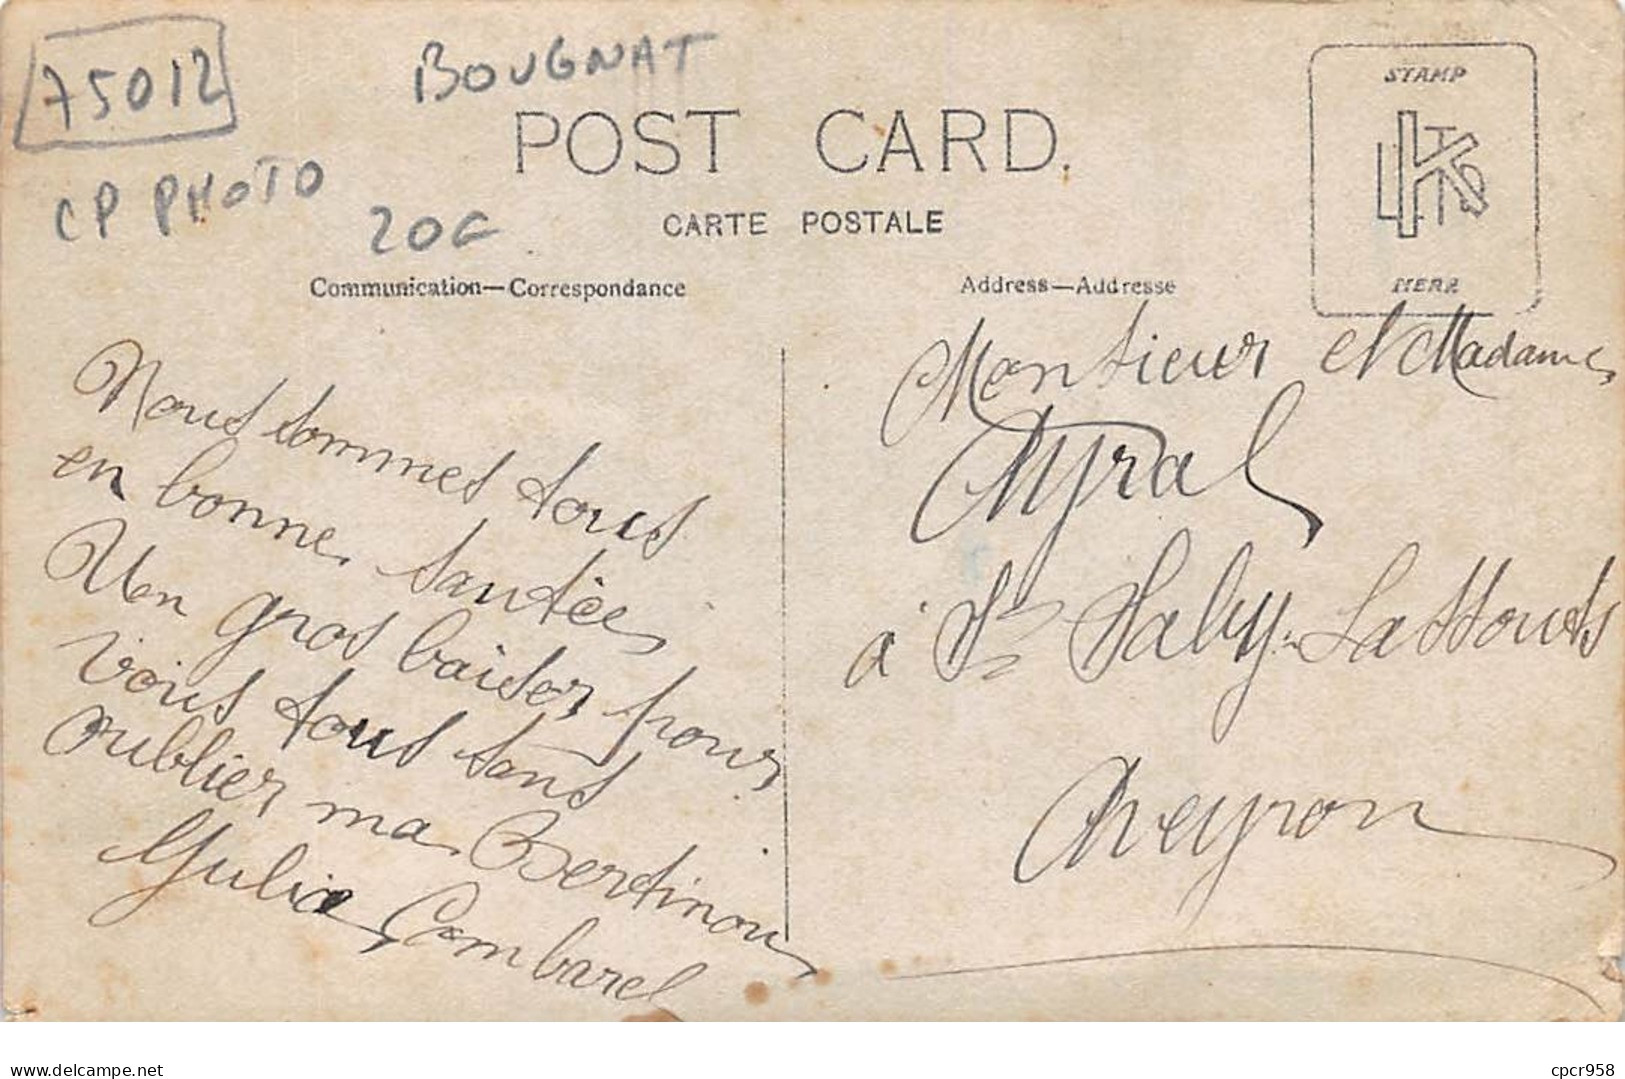 75012
BOUGNAT
POST CARD.
CP PHOTO
20C
CARTE POSTALE
STAMP
HERE
Communication—Correspondance
Address—Addresse
Nous sommes tous
en bonne santées
Un gros baiser pour
vous tous sans
oublier ma Bertinou
Julia Combarel
Monsieur et Madame
Ayral
à St Saby-Lassouts
Aveyron
cpcr958